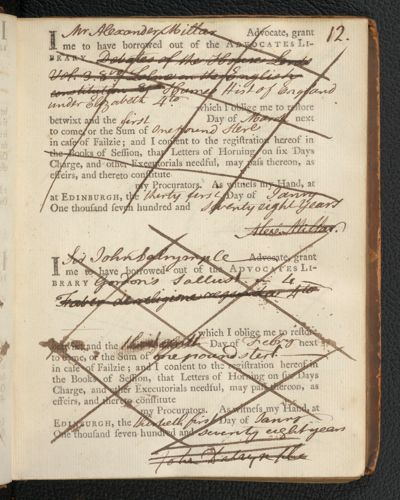 12.
I Mr Alexander Millar Advocate, grant
me to have borrowed out of the ADVOCATES LI-
BRARY Debates of the House Lords
Vol. 3. & De Lolme on the English
constitution & Humes Hist of England
under Elizabeth 4to
which I oblige me to restore
betwixt and the first Day of March next
to come, or the Sum of One pound Sterl
in case of Failzie; and I consent to the registration hereof in
the Books of Session, that Letters of Horning on six Days
Charge, and other Executorials needful, may pass thereon, as
effeirs, and thereto constitute
my Procurators. As witness my Hand, at
at EDINBURGH, the thirty first Day of Janry
One thousand seven hundred and Seventy eight Years
Alexr. Millar.
I Sir John Dalrymple Advocate, grant
me to have borrowed out of the ADVOCATES LI-
BRARY Gordon's Sallust 4to
Faber de religione 4to
which I oblige me to restore
betwixt and the Day of Febry next
to come, or the Sum of one pound sterl.
in case of Failzie; and I consent to the registration hereof in
the Books of Session, that Letters of Horning on six Days
Charge, and other Executorials needful, may pass thereon, as
effeirs, and thereto constitute
my Procurators. As witness my Hand, at
EDINBURGH, the first Day of Janry
One thousand seven hundred and seventy eight years
John Dalrymple